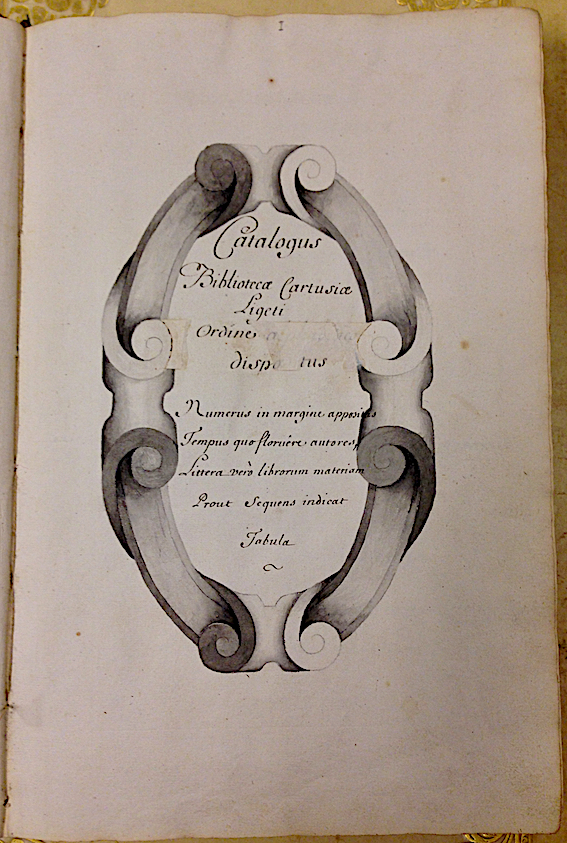 1
Catalogus
Bibliotecæ Cartusiæ
Ligeti
Ordine
dispo tus
Numerus in margine appositus
Tempus quo floruêre autores,
Littera verò librorum materiam
Prout Sequens indicat
Tabula